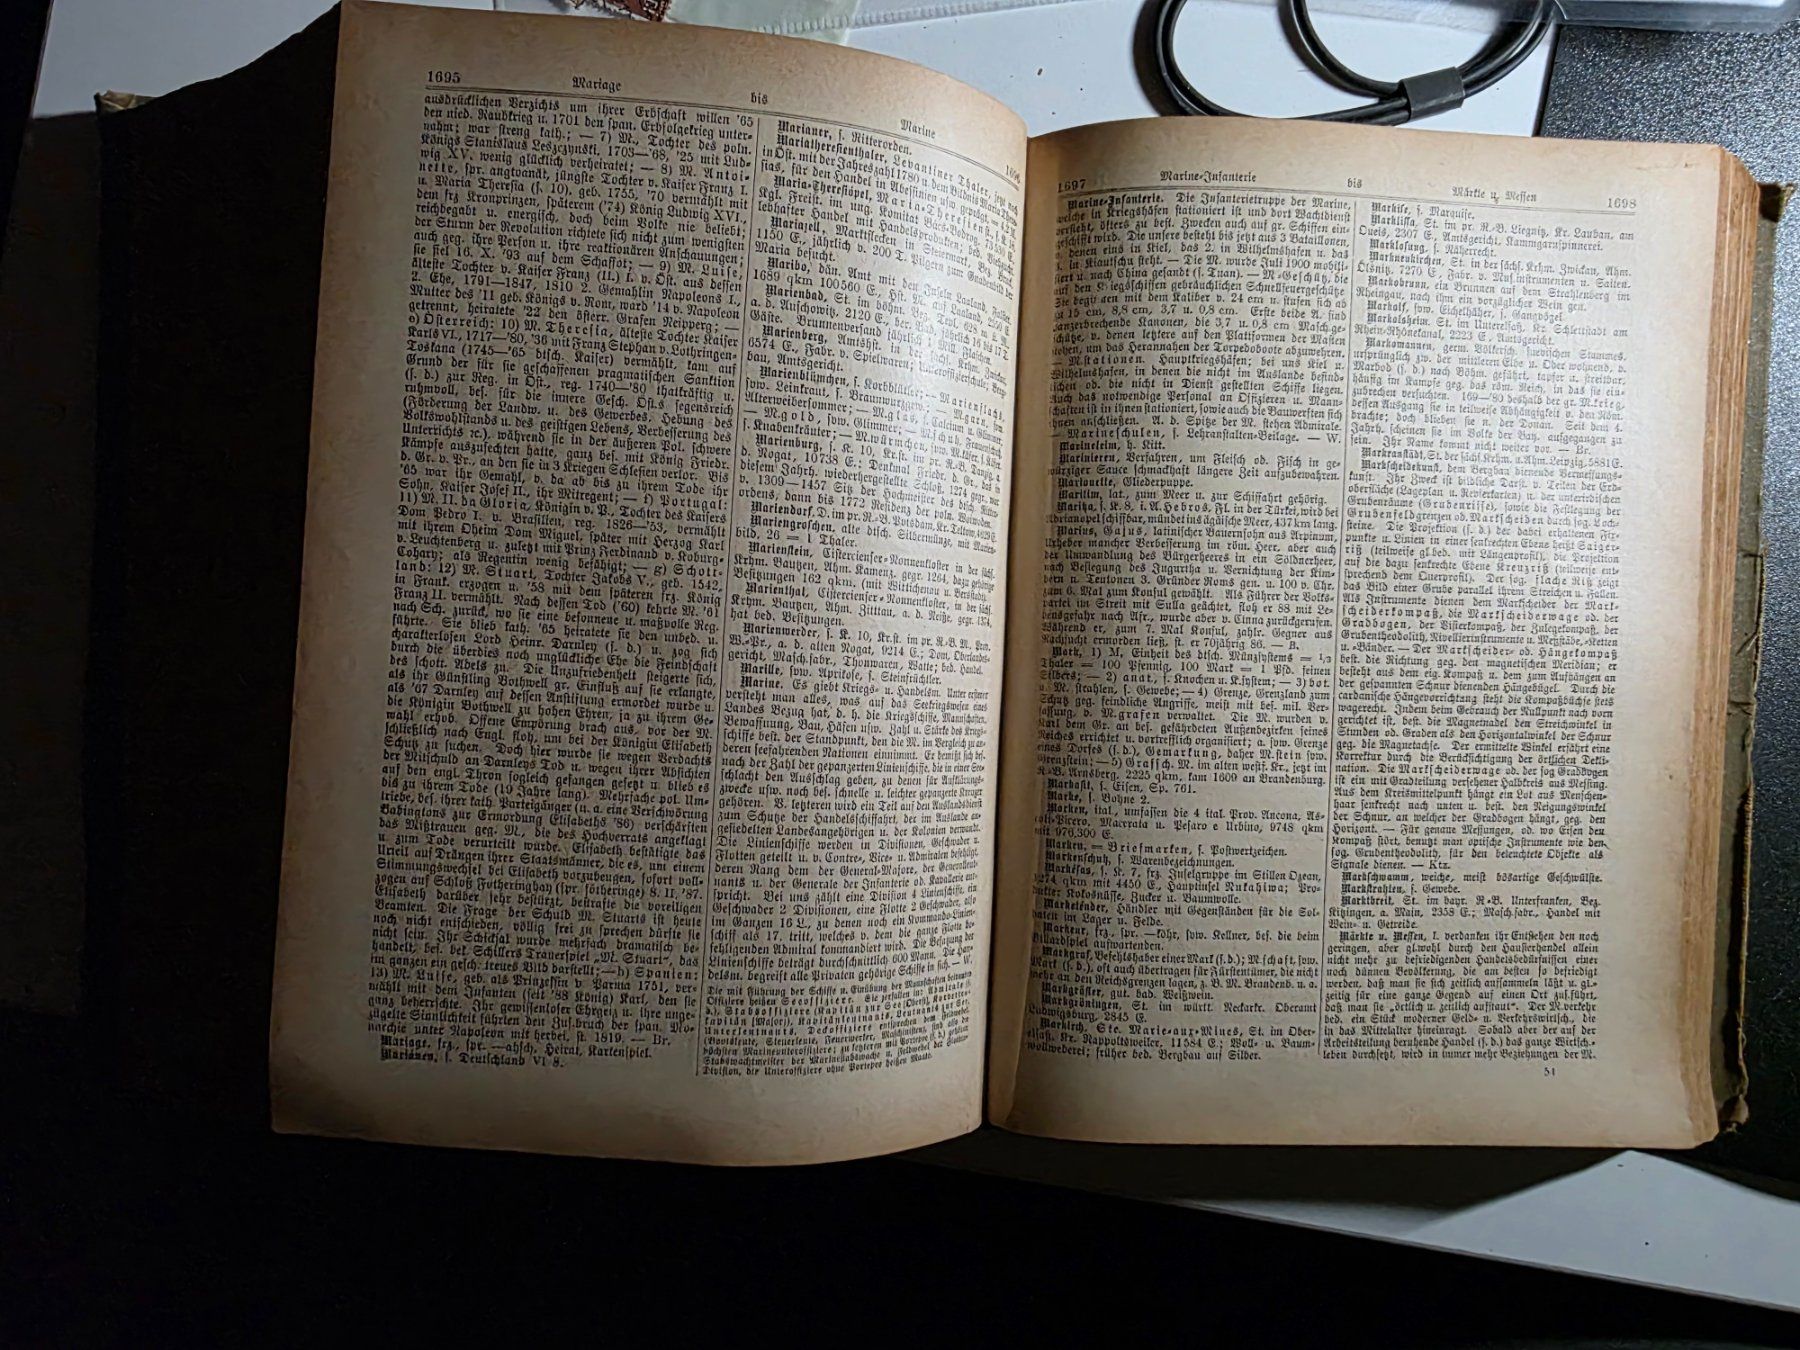 1695
Mariage
bis
Marine
ausdrücklichen Verzichts um ihrer Erbschaft willen '65
den nied. Raubkrieg u. 1701 den span. Erbfolgekrieg unter-
nahm; war streng kath.; — 7) M., Tochter des poln.
Königs Stanislaus Leszczynski, 1703—'68, '25 mit Lud-
wig XV. wenig glücklich verheiratet; — 8) M. Antoi-
nette, spr. angtoanät, jüngste Tochter v. Kaiser Franz I.
u. Maria Theresia (s. 10), geb. 1755, '70 vermählt mit
dem frz Kronprinzen, späterem ('74) König Ludwig XVI.,
reichbegabt u. energisch, doch beim Volke nie beliebt;
der Sturm der Revolution richtete sich nicht zum wenigsten
auch geg. ihre Person u. ihre reaktionären Anschauungen;
sie fiel 16. X. '93 auf dem Schafott; — 9) M. Luise,
älteste Tochter v. Kaiser Franz (II.) I. v. Öst. aus dessen
2. Ehe, 1791—1847, 1810 2. Gemahlin Napoleons I.,
Mutter des '11 geb. Königs v. Rom, ward '14 v. Napoleon
getrennt, heiratete '22 den österr. Grafen Neipperg; —
e) Österreich: 10) M. Theresia, älteste Tochter Kaiser
Karls VI., 1717—'80, '36 mit Franz Stephan v. Lothringen-
Toskana (1745—'65 dtsch. Kaiser) vermählt, kam auf
Grund der für sie geschaffenen pragmatischen Sanktion
(s. d.) zur Reg. in Öst., reg. 1740—'80 thatkräftig u.
ruhmvoll, bes. für die innere Gesch. Öst.s segensreich
(Förderung der Landw. u. des Gewerbes, Hebung des
Volkswohlstands u. des geistigen Lebens, Verbesserung des
Unterrichts ꝛc.), während sie in der äußeren Pol. schwere
Kämpfe auszufechten hatte, ganz bes. mit König Friedr.
d. Gr. v. Pr., an den sie in 3 Kriegen Schlesien verlor. Bis
'65 war ihr Gemahl, v. da ab bis zu ihrem Tode ihr
Sohn, Kaiser Josef II., ihr Mitregent; — f) Portugal:
11) M. II. da Gloria, Königin v. P., Tochter des Kaisers
Dom Pedro I. v. Brasilien, reg. 1826—'53, vermählt
mit ihrem Oheim Dom Miguel, später mit Herzog Karl
v. Leuchtenberg u. zuletzt mit Prinz Ferdinand v. Koburg-
Cohary; als Regentin wenig befähigt; — g) Schott-
land: 12) M. Stuart, Tochter Jakobs V., geb. 1542,
in Frank. erzogen u. '58 mit dem späteren frz. König
Franz II. vermählt. Nach dessen Tod ('60) kehrte M. '61
nach Sch. zurück, wo sie eine besonnene u. maßvolle Reg.
führte. Sie blieb kath. '65 heiratete sie den unbed. u.
charakterlosen Lord Heinr. Darnley (s. d.) u. zog sich
durch die überdies noch unglückliche Ehe die Feindschaft
des schott. Adels zu. Die Unzufriedenheit steigerte sich,
als ihr Günstling Bothwell gr. Einfluß auf sie erlangte,
als '67 Darnley auf dessen Anstiftung ermordet wurde u.
die Königin Bothwell zu hohen Ehren, ja zu ihrem Ge-
mahl erhob. Offene Empörung brach aus, vor der M.
schließlich nach Engl. floh, um bei der Königin Elisabeth
Schutz zu suchen. Doch hier wurde sie wegen Verdachts
der Mitschuld an Darnleys Tod u. wegen ihrer Absichten
auf den engl. Thron sogleich gefangen gesetzt u. blieb es
bis zu ihrem Tode (19 Jahre lang). Mehrfache pol. Um-
triebe, bes. ihrer kath. Parteigänger (u. a. eine Verschwörung
Babingtons zur Ermordung Elisabeths '86) verschärften
das Mißtrauen geg. M., die des Hochverrats angeklagt
u. zum Tode verurteilt wurde. Elisabeth bestätigte das
Urteil auf Drängen ihrer Staatsmänner, die es, um einem
Stimmungswechsel bei Elisabeth vorzubeugen, sofort voll-
zogen auf Schloß Fotheringhay (spr. fötheringe) 8. II. '87.
Elisabeth darüber sehr bestürzt, bestrafte die voreiligen
Beamten. Die Frage der Schuld M. Stuarts ist heute
noch nicht entschieden, völlig frei zu sprechen dürfte sie
nicht sein. Ihr Schicksal wurde mehrfach dramatisch be-
handelt, bes. bek. Schillers Trauerspiel „M. Stuart“, das
im ganzen ein gesch. treues Bild darstellt; — h) Spanien:
13) M. Luise, geb. als Prinzessin v. Parma 1751, ver-
mählt mit dem Infanten (seit '88 König) Karl, den sie
ganz beherrschte. Ihr gewissenloser Ehrgeiz u. ihre unge-
zügelte Sinnlichkeit führten den Zus.bruch der span. Mo-
narchie unter Napoleon mit herbei, st. 1819. — Br.
Mariage, frz., spr. —ahsch, Heirat, Kartenspiel.
Marianen, s. Deutschland VI 8.
Marianer, s. Ritterorden.
Mariatheresienthaler, Levantiner Thaler, jetzt noch
in Öst. mit der Jahreszahl 1780 u. dem Bildnis Maria There-
sias, für den Handel in Abessinien usw. geprägt,
Maria-Theresiopel, Maria-Theresienst.,
Kgl. Freist. im ung. Komitat Bács-Bodrog, 73530 E.,
lebhafter Handel mit Landesprodukten;
Mariazell, Marktflecken in Steiermark, Bez.
1150 E., jährlich v. 200 T. Pilgern zum Gnadenbild der
Maria besucht.
Maribo, dän. Amt mit den Inseln Laaland, Falster,
1689 qkm 100560 E., Hst. M. auf Laaland, 2550 E.
Marienbad, St. im böhm. Bez. Tepl, 628 m ü. M.,
a. d. Auschowitz, 2120 E., ber. Bad, jährlich 16 bis 17 T.
Gäste. Brunnenversand jährlich 1 Mill. Flaschen.
Marienberg, Amtshst. in der sächs. Krhm. Zwickau,
6574 E., Fabr. v. Spielwaren; Unteroffizierschule; Berg-
bau, Amtsgericht.
Marienblümchen, s. Korbblütler; — Marienflachs,
sow. Leinkraut, s. Braunwurzgew.; — M.garn, sow.
Alterweibersommer; — M.glas, s. Calcium u. Glimmer;
— M.gold, sow. Glimmer; — M.schuh, Frauenschuh,
s. Knabenkräuter; — M.würmchen, sow. M.käfer, s. Käfer.
Marienburg, s. K. 10, Kr.st. im pr. R.-B. Danzig, a.
d. Nogat, 10738 E.; Denkmal Friedr. d. Gr., das in
diesem Jahrh. wiederhergestellte Schloß, 1274 gegr., war
v. 1309—1457 Sitz der Hochmeister des dtsch. Ritter-
ordens, dann bis 1772 Residenz der poln. Woiwoden.
Mariendorf, D. im pr. R.-B. Potsdam, Kr. Teltow,
Mariengroschen, alte dtsch. Silbermünze, mit Marien-
bild, 26 = 1 Thaler.
Marienstein, Cistercienser-Nonnenkloster in der sächs.
Krhm. Bautzen, Ahm. Kamenz, gegr. 1264, dazu gehörige
Besitzungen 162 qkm, (mit Wittichenau u. Bernstadt).
Marienthal, Cistercienser-Nonnenkloster, in der sächs.
Krhm. Bautzen, Ahm. Zittau, a. d. Neiße, gegr.
hat bed. Besitzungen.
Marienwerder, s. K. 10, Kr.st. im pr. R.-B. M., Prov.
W.-Pr., a. d. alten Nogat, 9214 E.; Dom, Oberlandes-
gericht, Masch.fabr., Thonwaren, Watte; bed. Handel.
Marille, sow. Aprikose, s. Steinfrüchtler.
Marine. Es giebt Kriegs- u. Handelsm. Unter ersterer
versteht man alles, was auf das Seekriegswesen eines
Landes Bezug hat, d. h. die Kriegsschiffe, Mannschaften,
Bewaffnung, Bau, Häfen usw. Zahl u. Stärke des Kriegs-
schiffe best. der Standpunkt, den die M. im Vergleich zu an-
deren seefahrenden Nationen einnimmt. Er bemißt sich bes.
nach der Zahl der gepanzerten Linienschiffe, die in einer See-
schlacht den Ausschlag geben, zu denen für Aufklärungs-
zwecke usw. noch bes. schnelle u. leichter gepanzerte Kreuzer
gehören. V. letzteren wird ein Teil auf den Auslandsdienst
zum Schutze der Handelsschiffahrt, der im Auslande an-
gesiedelten Landesangehörigen u. der Kolonien verwandt.
Die Linienschiffe werden in Divisionen, Geschwader u.
Flotten geteilt u. v. Contre-, Vice- u. Admiralen befehligt,
deren Rang dem der General-Majore, der Generalleut-
nants u. der Generale der Infanterie od. Kavallerie ent-
spricht. Bei uns zählt eine Division 4 Linienschiffe, ein
Geschwader 2 Divisionen, eine Flotte 2 Geschwader, also
im Ganzen 16 L., zu denen noch ein Kommando-Linien-
schiff als 17. tritt, welches v. dem die ganze Flotte be-
fehligenden Admiral kommandiert wird. Die Besatzung der
Linienschiffe beträgt durchschnittlich 600 Mann. Die Han-
delsm. begreift alle Privaten gehörige Schiffe in sich. — W.
Die mit Führung der Schiffe u. Einübung der Mannschaften betrauten
Offiziere heißen Seeoffiziere. Sie zerfallen in: Admirale (s.
d.), Stabsoffiziere (Kapitän zur See (Oberst), Korvetten-
kapitän (Major)), Kapitänleutnants, Leutnants zur See,
Unterleutnants, Deckoffiziere entsprechen dem Feldwebel
(Bootsleute, Steuerleute, Feuerwerker, Maschinisten)
höchsten Marineunteroffiziere; zu letzteren mit Portepee
Stabswachtmeister der Marinestabswache u. Feldwebel der
Division, die Unteroffiziere ohne Portepee heißen Maate.
1697
Marine-Infanterie
bis
Märkte u. Messen
1698
Marine-Infanterie. Die Infanterietruppe der Marine,
welche in Kriegshäfen stationiert ist und dort Wachtdienst
versieht, öfters zu bes. Zwecken auch auf gr. Schiffen ein-
geschifft wird. Die unsere besteht bis jetzt aus 3 Bataillonen,
v. denen eins in Kiel, das 2. in Wilhelmshafen u. das
3. in Kiautschu steht. — Die M. wurde Juli 1900 mobili-
siert u. nach China gesandt (s. Tuan). — M.-Geschütz, die
auf den Kriegsschiffen gebräuchlichen Schnellfeuergeschütze.
Sie beginnen mit dem Kaliber v. 24 cm u. stufen sich ab
zu 15 cm, 8,8 cm, 3,7 u. 0,8 cm. Erste beide A. sind
panzerbrechende Kanonen, die 3,7 u. 0,8 cm Masch.ge-
schütze, v. denen letztere auf den Plattformen der Masten
stehen, um das Herannahen der Torpedoboote abzuwehren.
— M.stationen. Hauptkriegshäfen; bei uns Kiel u.
Wilhelmshafen, in denen die nicht im Auslande befind-
lichen od. die nicht in Dienst gestellten Schiffe liegen.
Auch das notwendige Personal an Offizieren u. Mann-
schaften ist in ihnen stationiert, sowie auch die Bauwerften sich
ihnen anschließen. A. d. Spitze der M. stehen Admirale.
— Marineschulen, s. Lehranstalten-Beilage. — W.
Marineleim, h. Kitt.
Marinieren, Verfahren, um Fleisch od. Fisch in ge-
würziger Sauce schmackhaft längere Zeit aufzubewahren.
Marionette, Gliederpuppe.
Maritim, lat., zum Meer u. zur Schiffahrt gehörig.
Maritza, s. K. 8, i. A. Hebros, Fl. in der Türkei, wird bei
Adrianopel schiffbar, mündet ins ägäische Meer, 437 km lang.
Marius, Gajus, latinischer Bauernsohn aus Arpinum,
Urheber mancher Verbesserung im röm. Heer, aber auch
der Umwandlung des Bürgerheeres in ein Söldnerheer,
nach Besiegung des Jugurtha u. Vernichtung der Kim-
bern u. Teutonen 3. Gründer Roms gen. u. 100 v. Chr.
zum 6. Mal zum Konsul gewählt. Als Führer der Volks-
partei im Streit mit Sulla geächtet, floh er 88 mit Le-
bensgefahr nach Afr., wurde aber v. Cinna zurückgerufen.
Während er, zum 7. Mal Konsul, zahlr. Gegner aus
Rachsucht ermorden ließ, st. er 70jährig 86. — B.
Mark, 1) Mr. Einheit des dtsch. Münzsystems = 1/3
Thaler = 100 Pfennig, 100 Mark = 1 Pfd. feinen
Silbers; — 2) anat., s. Knochen u. N.system; — 3) bot.
u. M. strahlen, s. Gewebe; — 4) Grenze, Grenzland zum
Schutz geg. feindliche Angriffe, meist mit bes. mil. Ver-
fassung, v. M.grafen verwaltet. Die M. wurden v.
Karl dem Gr. an bes. gefährdeten Außenbezirken seines
Reiches errichtet u. vortrefflich organisiert; a. sow. Grenze
eines Dorfes (s. d.), Gemarkung, daher M.stein sow.
Grenzstein; — 5) Grafsch. M. im alten westf. Kr., jetzt im
R.-B. Arnsberg, 2225 qkm, kam 1609 an Brandenburg.
Markasit, s. Eisen, Sp. 761.
Marke, s. Bohne 2.
Marken, ital., umfassen die 4 ital. Prov. Ancona, As-
coli-Picero, Macerata u. Pesaro e Urbino, 9748 qkm
mit 976,300 E.
Marken, = Briefmarken, s. Postwertzeichen.
Markenschutz, s. Warenbezeichnungen.
Markésas, s. K. 7, frz. Inselgruppe im Stillen Ozean,
1274 qkm mit 4450 E., Hauptinsel Nukahiwa; Pro-
dukte: Kokosnüsse, Zucker u. Baumwolle.
Marketender, Händler mit Gegenständen für die Sol-
daten im Lager u. Felde.
Markeur, frz., spr. —köhr, sow. Kellner, bes. die beim
Billardspiel aufwartenden.
Markgraf, Befehlshaber einer Mark (s. d.); M.schaft, sow.
Mark (s. d.), oft auch übertragen für Fürstentümer, die nicht
mehr an den Reichsgrenzen lagen, z. B. M. Brandenb. u. a.
Markgräfler, gut. bad. Weißwein.
Markgröningen, St. im württ. Neckarkr. Oberamt
Ludwigsburg, 2845 E.
Markirch, Ste. Marie-aux-Mines, St. im Ober-
elsaß, Kr. Rappoltsweiler, 11584 E.; Woll- u. Baum-
wollweberei; früher bed. Bergbau auf Silber.
Markise, s. Marquise.
Marklissa, St. im pr. R.-B. Liegnitz, Kr. Lauban, am
Queis, 2307 E., Amtsgericht, Kammgarnspinnerei.
Marklosung, s. Näherrecht.
Markneukirchen, St. in der sächs. Krhm. Zwickau, Ahm.
Ölsnitz, 7270 E., Fabr. v. Mus.instrumenten u. Saiten.
Markobrunn, ein Brunnen auf dem Strahlenberg im
Rheingau, nach ihm ein vorzüglicher Wein gen.
Markolf, sow. Eichelhäher, s. Gangvögel.
Markolsheim, St. im Unterelsaß, Kr. Schlettstadt am
Rhein-Rhônekanal, 2223 E., Amtsgericht.
Markomannen, germ. Völkersch. suevischen Stammes,
ursprünglich zw. der mittleren Elbe u. Oder wohnend, v.
Marbod (s. d.) nach Böhm. geführt, tapfer u. streitbar,
häufig im Kampfe geg. das röm. Reich, in das sie ein-
zubrechen versuchten. 169—80 deshalb der gr. M.krieg,
dessen Ausgang sie in teilweise Abhängigkeit v. den Röm.
brachte; doch blieben sie n. der Donau. Seit dem 4.
Jahrh. scheinen sie im Volke der Bay. aufgegangen zu
sein. Ihr Name kommt nicht weiter vor. — Br.
Markranstädt, St. der sächs. Krhm. u. Ahm. Leipzig, 5881 E.
Markscheidekunst, dem Bergbau dienende Vermessungs-
kunst. Ihr Zweck ist bildliche Darst. v. Teilen der Erd-
oberfläche (Lageplan u. Revierkarten) u. der unterirdischen
Grubenräume (Grubenrisse), sowie die Festlegung der
Grubenfeldgrenzen od. Markscheiden durch sog. Loch-
steine. Die Projektion (s. d.) der dabei erhaltenen Fix-
punkte u. Linien in einer senkrechten Ebene heißt Saiger-
riß (teilweise gl.bed. mit Längenprofil), die Projektion
auf die dazu senkrechte Ebene Kreuzriß (teilweise ent-
sprechend dem Querprofil). Der sog. flache Riß zeigt
das Bild einer Grube parallel ihrem Streichen u. Fallen.
Als Instrumente dienen dem Markscheider der Mark-
scheiderkompaß, die Markscheiderwage od. der
Gradbogen, der Visierkompaß, der Zulegekompaß, der
Grubentheodolith, Nivellierinstrumente u. Meßstäbe, -Ketten
u. -Bänder. — Der Markscheider- od. Hängekompaß
best. die Richtung geg. den magnetischen Meridian; er
besteht aus dem eig. Kompaß u. dem zum Aufhängen an
der gespannten Schnur dienenden Hängebügel. Durch die
cardanische Hängevorrichtung steht die Kompaßbüchse stets
wagerecht. Indem beim Gebrauch der Nullpunkt nach vorn
gerichtet ist, best. die Magnetnadel den Streichwinkel in
Stunden od. Graden als den Horizontalwinkel der Schnur
geg. die Magnetachse. Der ermittelte Winkel erfährt eine
Korrektur durch die Berücksichtigung der örtlichen Dekli-
nation. Die Markscheiderwage od. der sog Gradbogen
ist ein mit Gradteilung versehener Halbkreis aus Messing.
Aus dem Kreismittelpunkt hängt ein Lot aus Menschen-
haar senkrecht nach unten u. best. den Neigungswinkel
der Schnur, an welcher der Gradbogen hängt, geg. den
Horizont. — Für genaue Messungen, od. wo Eisen den
Kompaß stört, benutzt man optische Instrumente wie den
sog. Grubentheodolith, für den beleuchtete Objekte als
Signale dienen. — Ktz.
Markschwamm, weiche, meist bösartige Geschwülste.
Markstrahlen, s. Gewebe.
Marktbreit, St. im bayr. R.-B. Unterfranken, Bez.
Kitzingen, a. Main, 2358 E.; Masch.fabr., Handel mit
Wein- u. Getreide.
Märkte u. Messen, I. verdanken ihr Entstehen den noch
geringen, aber gl.wohl durch den Hausierhandel allein
nicht mehr zu befriedigenden Handelsbedürfnissen einer
noch dünnen Bevölkerung, die am besten so befriedigt
werden, daß man sie sich zeitlich ansammeln läßt u. gl.-
zeitig für eine ganze Gegend auf einen Ort zus.führt,
daß man sie „örtlich u. zeitlich anstaut“. Der M.verkehr
bed. ein Stück moderner Geld- u. Verkehrswirtsch., die
in das Mittelalter hineinragt. Sobald aber der auf der
Arbeitsteilung beruhende Handel (s. d.) das ganze Wirtsch.-
leben durchsetzt, wird in immer mehr Beziehungen der M.
54